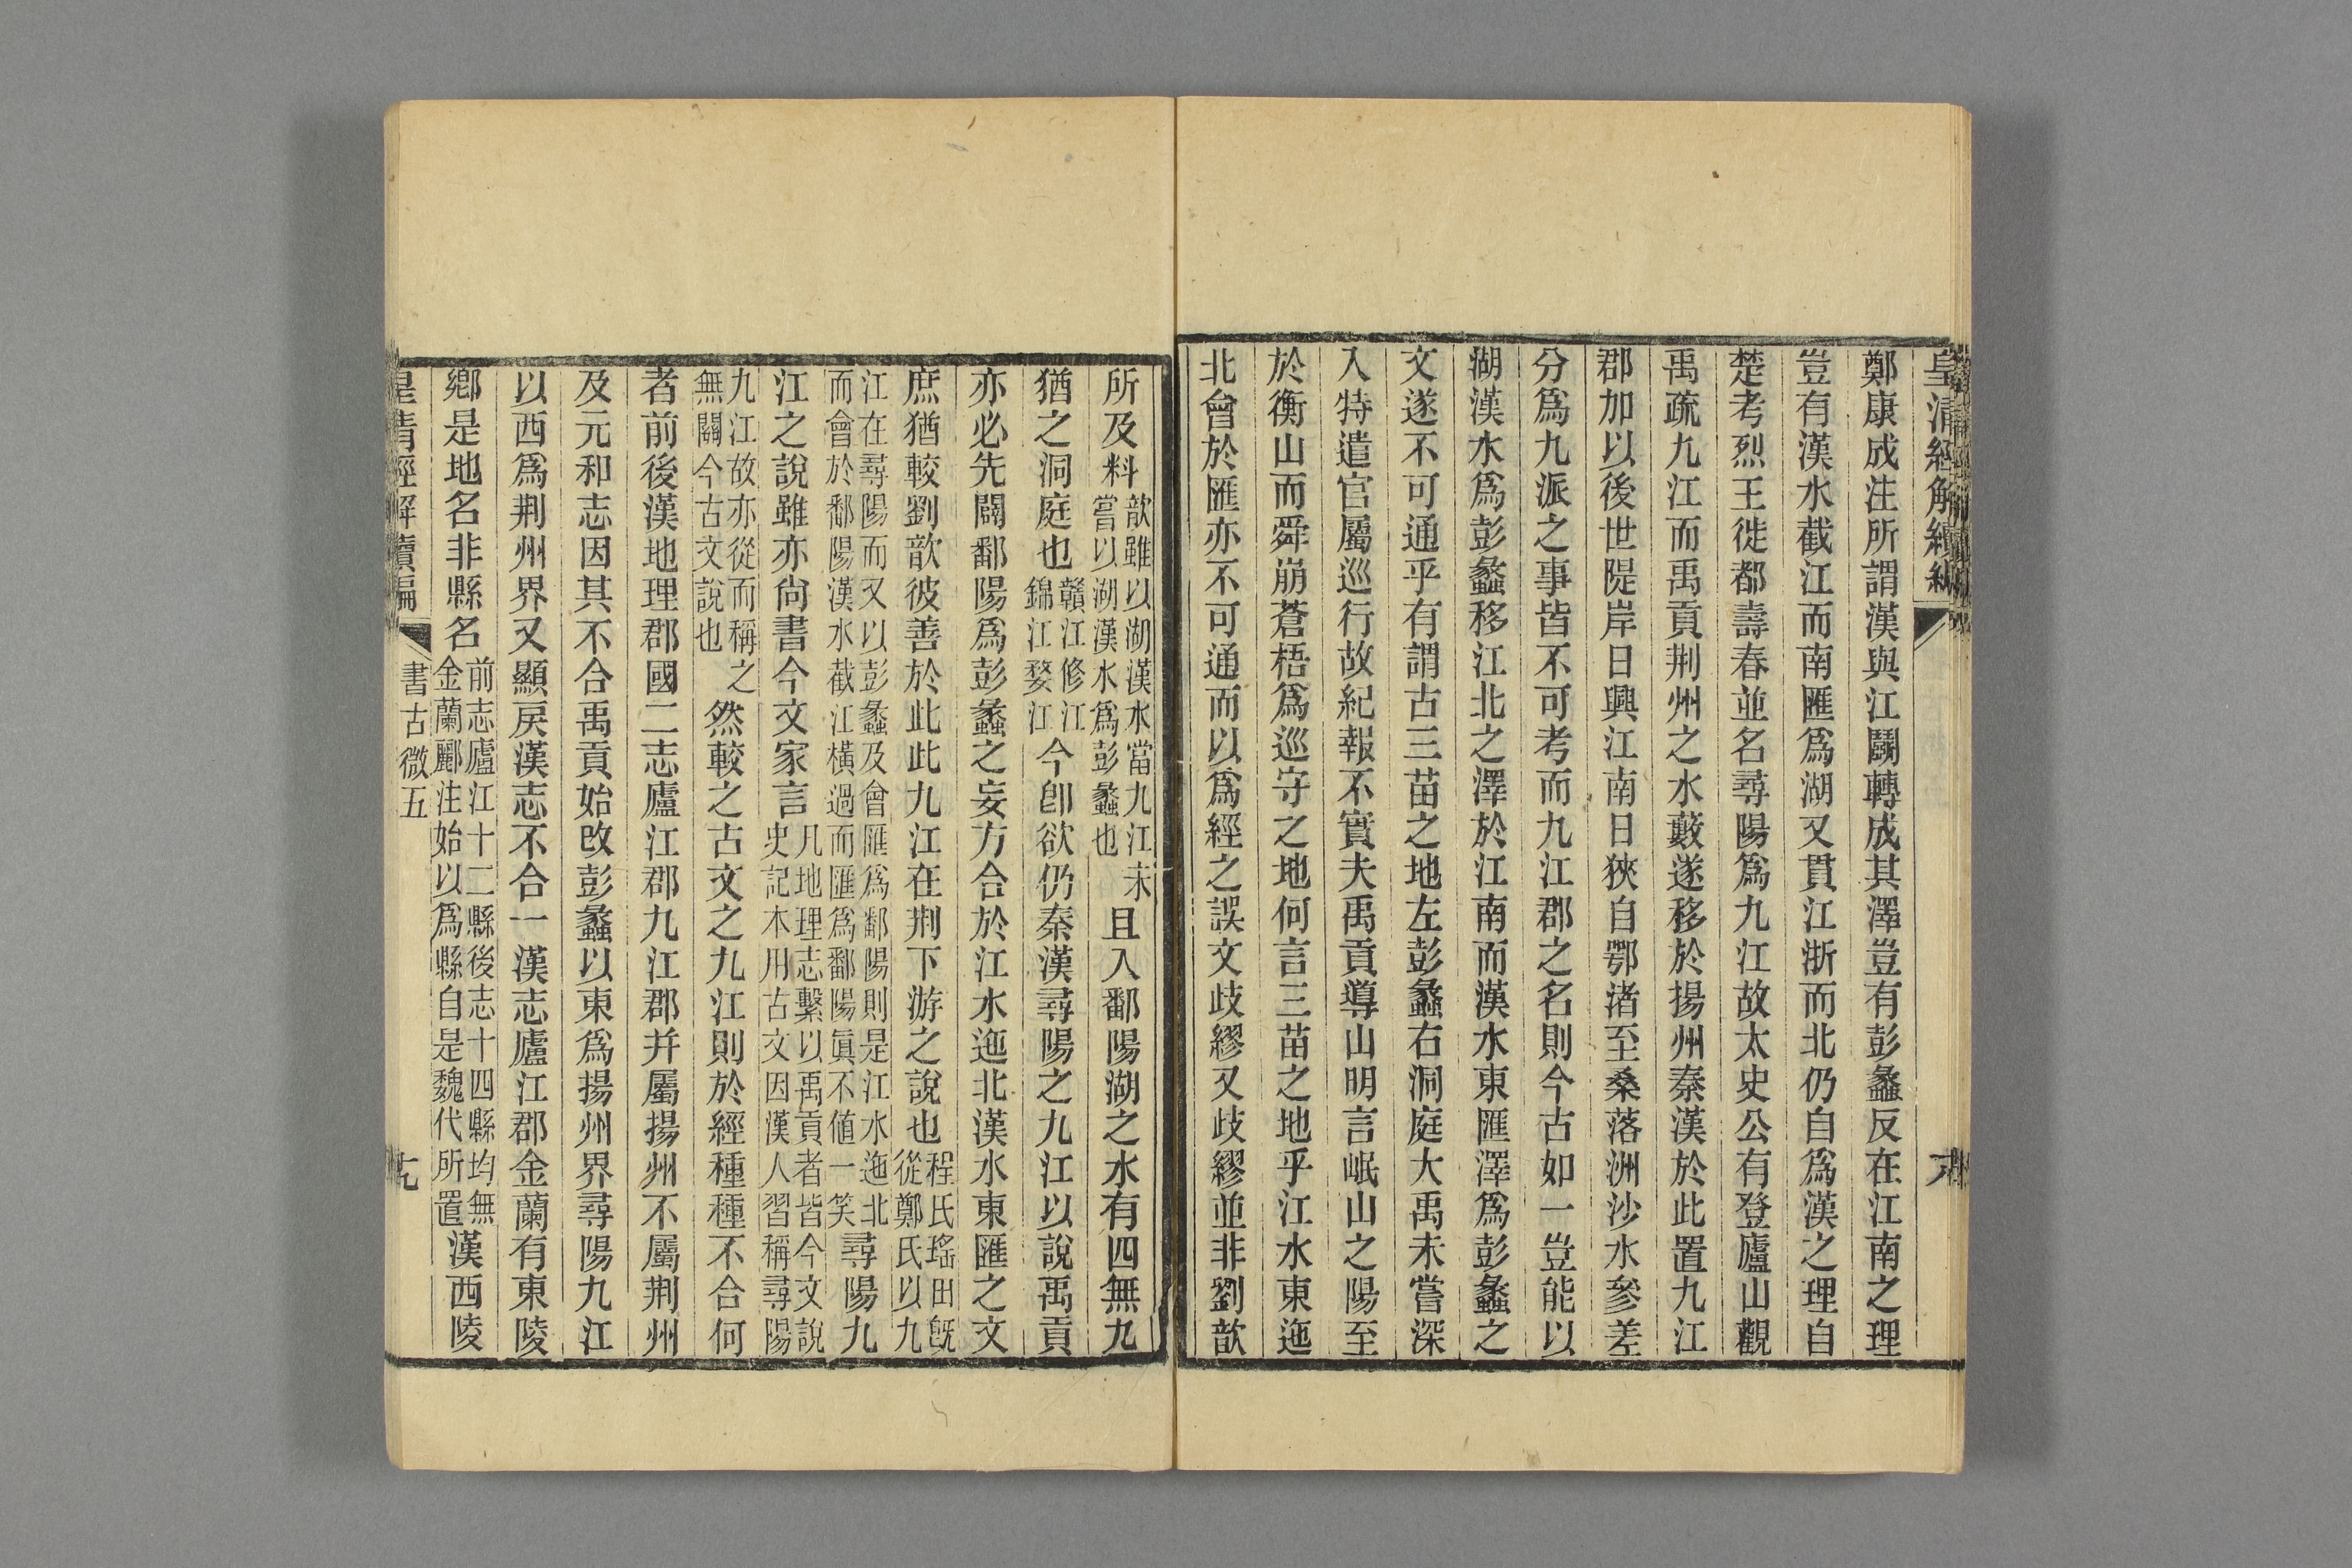 皇清經解續編
鄭康成注所謂漢與江鬬轉成其澤豈有彭蠡反在江南之理
豈有漢水截江而南匯爲湖又貫江浙而北仍自爲漢之理自
楚考烈王徙都壽春並名尋陽爲九江故太史公有登廬山觀
禹疏九江而禹貢荆州之水藪遂移於揚州秦漢於此置九江
郡加以後世隄岸日興江南日狹自鄂渚至桑落洲沙水參差
分爲九派之事皆不可考而九江郡之名則今古如一豈能以
湖漢水爲彭蠡移江北之澤於江南而漢水東匯澤爲彭蠡之
文遂不可通乎有謂古三苗之地左彭蠡右洞庭大禹未嘗深
入特遣官屬巡行故紀報不實夫禹貢導山明言岷山之陽至
於衡山而舜崩蒼梧爲巡守之地何言三苗之地乎江水東迤
北會於匯亦不可通而以爲經之誤文歧繆又歧繆並非劉歆
所及料歆雖以湖漢水當九江未嘗以湖漢水爲彭蠡也且入鄱陽湖之水有四無九
猶之洞庭也贛江修江錦江婺江今卽欲仍秦漢尋陽之九江以說禹貢
亦必先闢鄱陽爲彭蠡之妄方合於江水迤北漢水東匯之文
庶猶較劉歆彼善於此此九江在荆下游之說也程氏瑤田旣從鄭氏以九
江在尋陽而又以彭蠡及會匯爲鄱陽則是江水迤北而會於鄱陽漢水截江橫過而匯爲鄱陽眞不値一笑尋陽九
江之說雖亦尙書今文家言凡地理志繫以禹貢者皆今文說史記本用古文因漢人習稱尋陽
九江故亦從而稱之無關今古文說也然較之古文之九江則於經種種不合何
者前後漢地理郡國二志廬江郡九江郡并屬揚州不屬荆州
及元和志因其不合禹貢始改彭蠡以東爲揚州界尋陽九江
以西爲荆州界又顯戾漢志不合一漢志廬江郡金蘭有東陵
鄉是地名非縣名前志廬江十二縣後志十四縣均無金蘭酈注始以爲縣自是魏代所置漢西陵
皇清經解續編 書古微五 十九